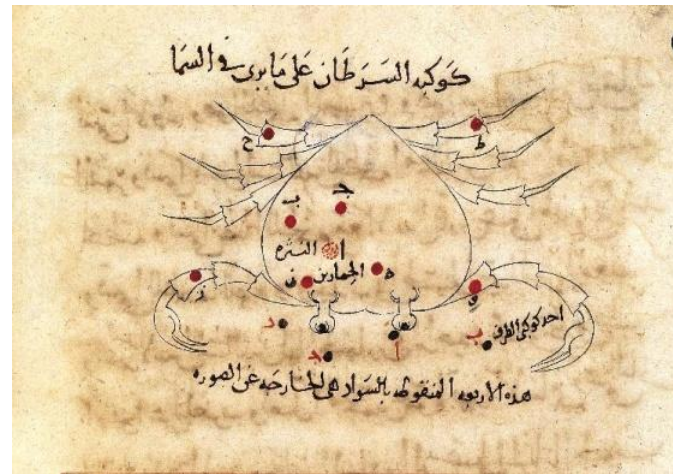 كوكبه السرطان على ما يرى في السما
ح
ط
ب
ج
ا النثره
الحمارين
ه
ز
و
احد كوكبي الطرف
د
ا
ب
ج
هذه الاربعه المنقوطه بالسواد هي الخارجه عن الصوره